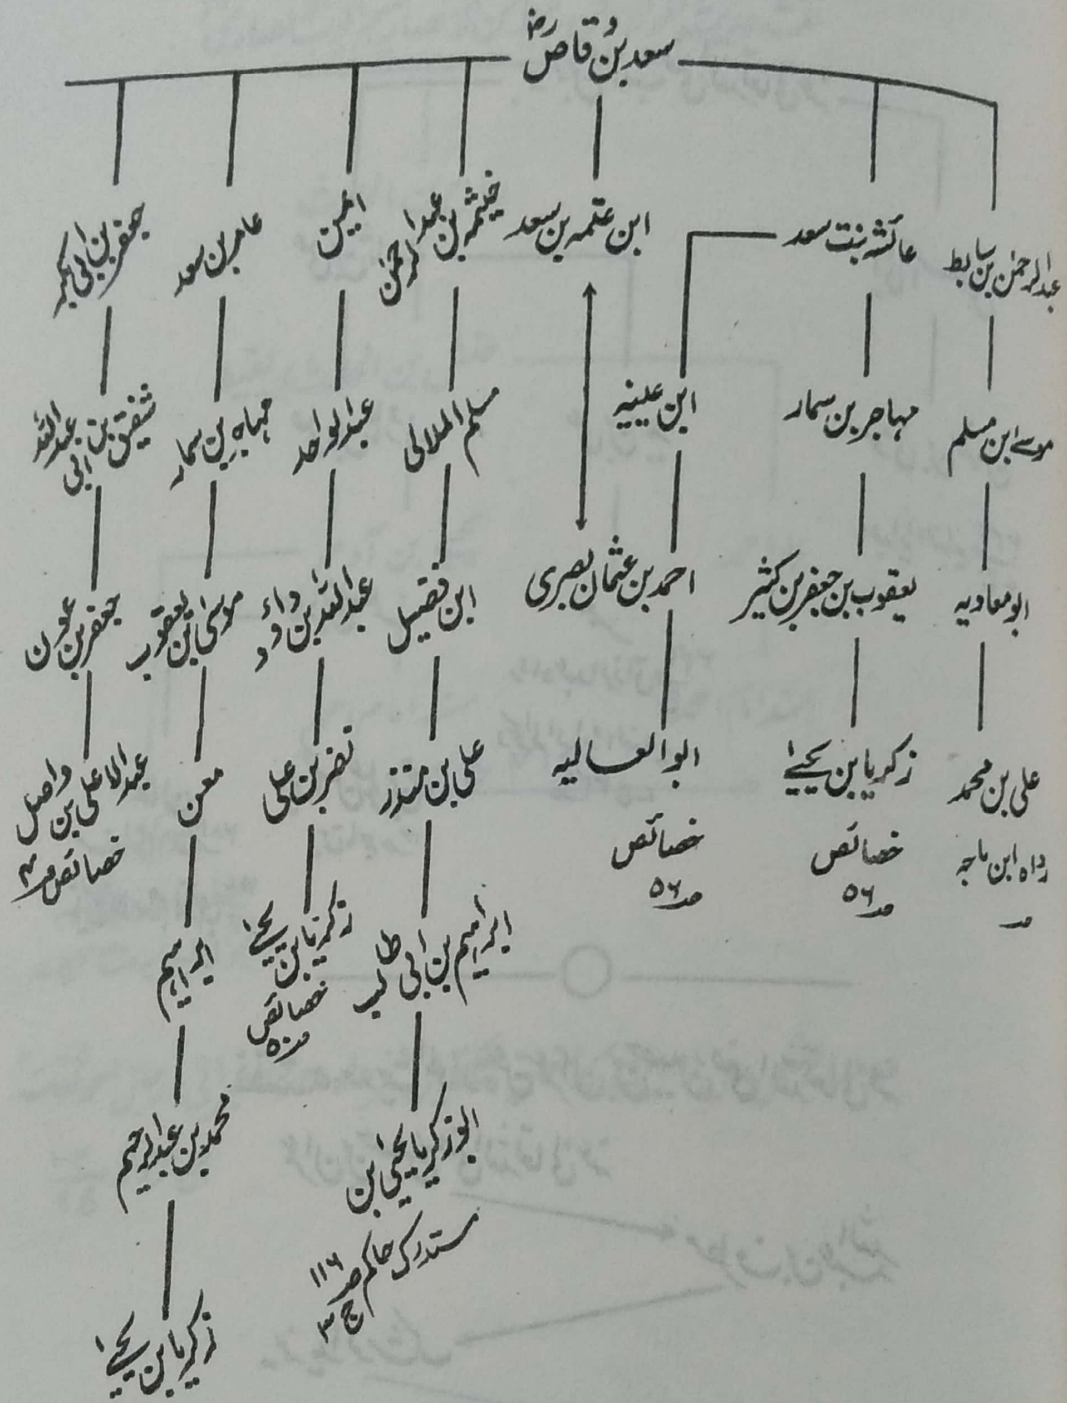 سعد بن وقاص رض
عبدالرحمٰن بن سابط
موسےٰ ابن مسلم
ابو معاویہ
علی بن محمد
رواہ ابن ماجہ
صـ
عائشہ بنت سعد
مہاجر بن سمار
یعقوب بن جعفر بن کثیر
زکریا بن یحییٰ
خصائص
صـ۵۶
ابن عیینہ
احمد بن عثمان بصری
ابو العالیہ
خصائص
صـ۵۶
ابن علقمہ بن سعد
خیثمہ بن عبد الرحمٰن
مسلم الملائی
ابن فضیل
علی بن منذر
ابراہیم بن ابی طالب
ابو زکریا یحییٰ ابن
مستدرک حاکم صـ۱۱۶
ج ۳
ایمن
عبدالواحد
عبداللہ بن داؤد
نصر بن علی
زکریا بن یحییٰ
خصائص
صـ۵۰
عامر بن سعد
مہاجر بن سمار
موسیٰ بن یعقوب
معن
ابراہیم
محمد بن عبدالرحیم
زکریا بن یحییٰ
جعفر بن ابی بکر
شفیق بن ابی عبداللہ
جعفر بن عون
عبدالاعلی بن واصل
خصائص صـ۴